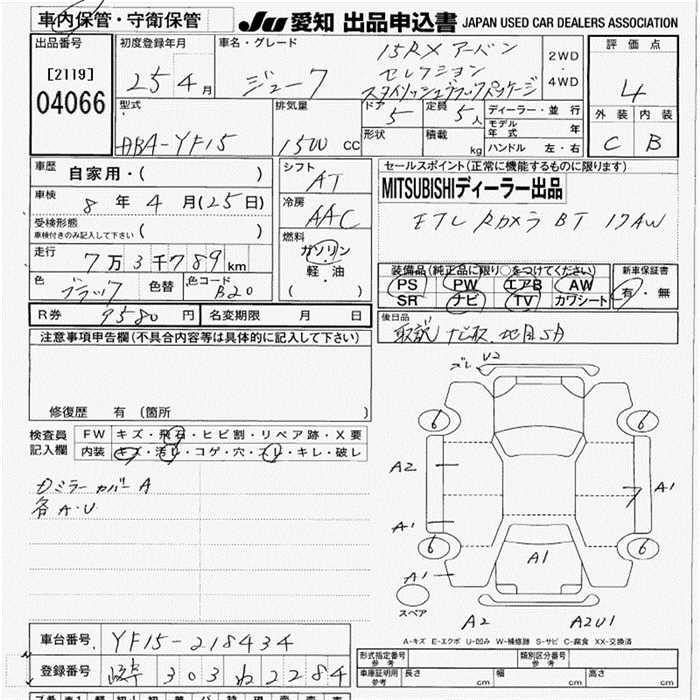 車内保管・守衛保管
JU 愛知 出品申込書 JAPAN USED CAR DEALERS ASSOCIATION
出品番号
[2119]
04066
初度登録年月
25年4月
車名・グレード
ジューク
15RX アーバン
セレクション
スタイリッシュブラックパッケージ
2WD
・
4WD
評価点
4
外装 内装
C B
型式
ABA-YF15
排気量
1500 cc
ドア
5
定員
5人
形状
積載
kg
ディーラー・並行
モデル年式 年
ハンドル 左・右
車歴
自家用・( )
車検
8年4月(25日)
受検形態
車検付きのみ記入して下さい ( )
走行
7万3千789km
色
ブラック
色替
色コード
B20
シフト
AT
冷房
AAC
燃料
ガソリン
・
軽・油
( )
セールスポイント(正常に機能するものに限ります)
MITSUBISHIディーラー出品
ETC Rカメラ BT 17AW
装備品(純正品に限り○をつけてください)
PS PW エアB AW
SR ナビ TV カワシート
新車保証書
有・無
R券 9580円
名変期限 月 日
後日品
取説 ナビ取
注意事項申告欄(不具合内容等は具体的に記入して下さい)
修復歴 有 (箇所 )
検査員
記入欄
FW キズ・飛石・ヒビ割・リペア跡・X要
内装 キズ・汚レ・コゲ・穴・スレ・キレ・破レ
カバーA
各A・U
ズレ U2
6 6
A2
7 A1
A1
6 6
A1
A1
スペア
A2 A2U1
A-キズ E-エクボ U-凹み W-補修跡 S-サビ C-腐食 XX-交換済
車台番号 YF15-218434
登録番号 303 ね 2284
形式指定番号
参考
類別区分番号
参考
車庫証明用
参考
長さ cm 幅 cm 高さ cm